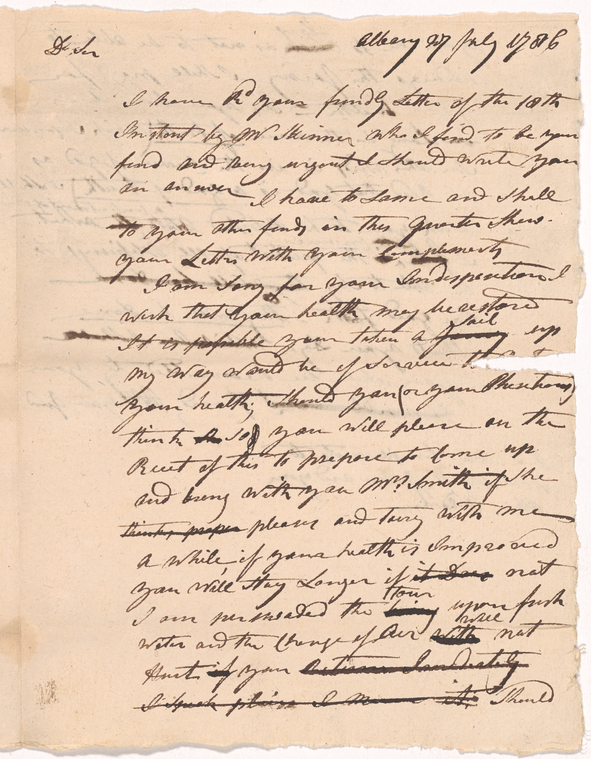 Dr Sir
Albany 27 July 1786
I have Rd your frindly Letter of the 18th
Instant by Mr Skinner who I find to be your
frind and being urgent I should write you
an answer I have to same and shall
to your other frinds in this Quarter Shew
your Letter with your Complements
I am Sorry for your Indisposition I
wish that your health may be restord
It is possible your taken a Sail up
my way would be of service to
your health, Should you (or your Phisitions)
think So) you will please on the
Receit of this to prepare to Come up
and bring with you Mrs Smith if she
thinks proper please and tarry with me
a while if your health is Improved
you will Stay Longer if it Dos not
I am persuaded the Tour upon fresh
water and the Change of Air will not
Hurt if you
I Should